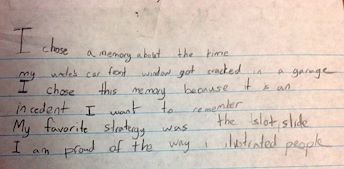 I chose a memory about the time
my uncle's car font window got cracked in a garage
I chose this memory because it is an
incedent I want to remember
My favorite strategy was the slot slide
I am proud of the way i ilustrated people